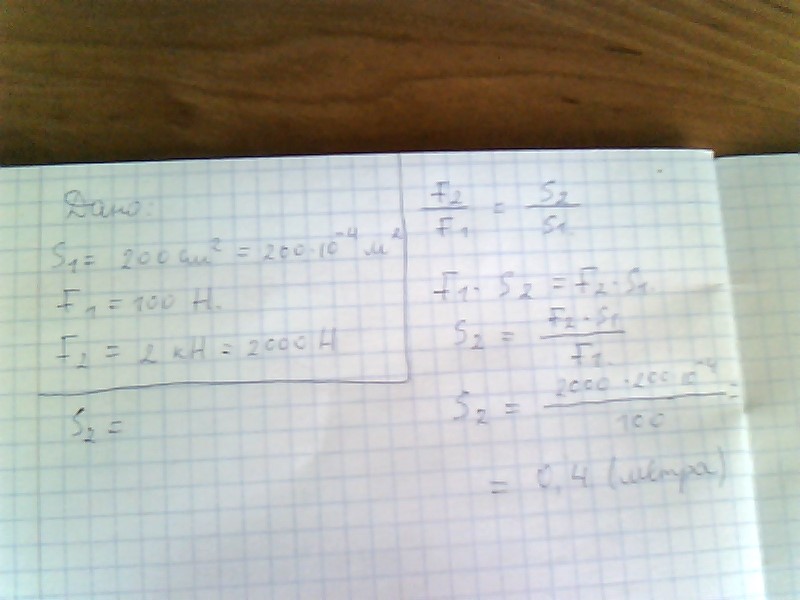 Дано:
S₁ = 200 см² = 200·10⁻⁴ м²
F₁ = 100 Н.
F₂ = 2 кН = 2000 Н
S₂ =
F₂/F₁ = S₂/S₁.
F₁ · S₂ = F₂ · S₁.
S₂ = F₂·S₁/F₁.
S₂ = 2000·200·10⁻⁴/100 =
= 0,4 (метра)